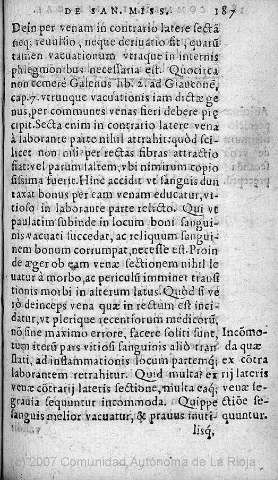 DE SAN. MISS. 187
Dein per venam in contrario latere sectã
neq; reuulsio, neque deriuatio fit, quarũ
tamen vacuationum vtraque in internis
phlegmonibus necessaria est. Quocirca
non temere Galenus lib. 2. ad Glaucone,
cap. 7. vtrunque vacuationis iam dictæ ge
nus, per communes venas fieri debere præ
cipit. Secta enim in contrario latere vena
à laborante parte nihil attrahit: quòd sci-
licet non nisi per rectas fibras attractio
fiat: vel parum saltem, vbi nimirum copio
sissima fuerit. Hinc accidit vt sanguis dun
taxat bonus per eam venam educatur, vi-
tioso in laborante parte relicto. Qui vt
paulatim subinde in locum boni sangui-
nis vacuati succedat, ac reliquum sangui-
nem bonum corrumpat, necesse est. Proin
de æger ob eam venæ sectionem nihil le-
uatur à morbo, ac periculũ imminet transi
tionis morbi in alterum latus. Quòd si ve
rò deinceps vena quæ in rectum est inci
datur, vt plerique recentiorum medicorũ,
nõ sine maximo errore, facere soliti sunt,
tum iterũ pars vitiosi sanguinis aliò trans
lati, ad inflammationis locum partemq́;
laborantem retrahitur. Quid multa? ex
venæ cõtrarij lateris sectione, multa eaq́;
grauia sequuntur incommoda. Quippe
sanguis melior vacuatur, & prauus inuti-
lisq́,
Incõmo-
da quæ
ex cõtra
rij lateris
venæ se-
ctiõe se-
quuntur.
(c) 2007 Comunidad Autónoma de La Rioja